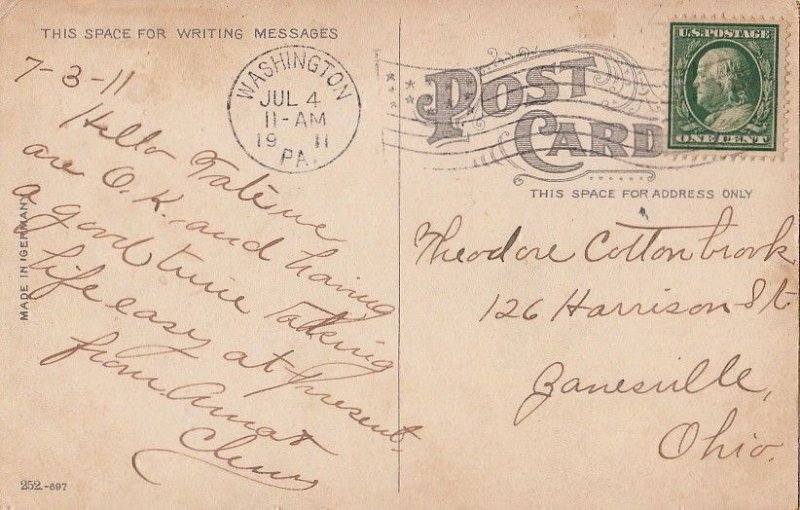 THIS SPACE FOR WRITING MESSAGES
7-3-11
Hello Tate we
are O.K. and having
a good time Taking
life easy at present.
from
MADE IN GERMANY
252.-697
WASHINGTON
JUL 4
11-AM
19 11
PA.
POST
CARD
U.S. POSTAGE
ONE CENT
THIS SPACE FOR ADDRESS ONLY
Theodore Cottonbrook
126 Harrison St
Zanesville,
Ohio.